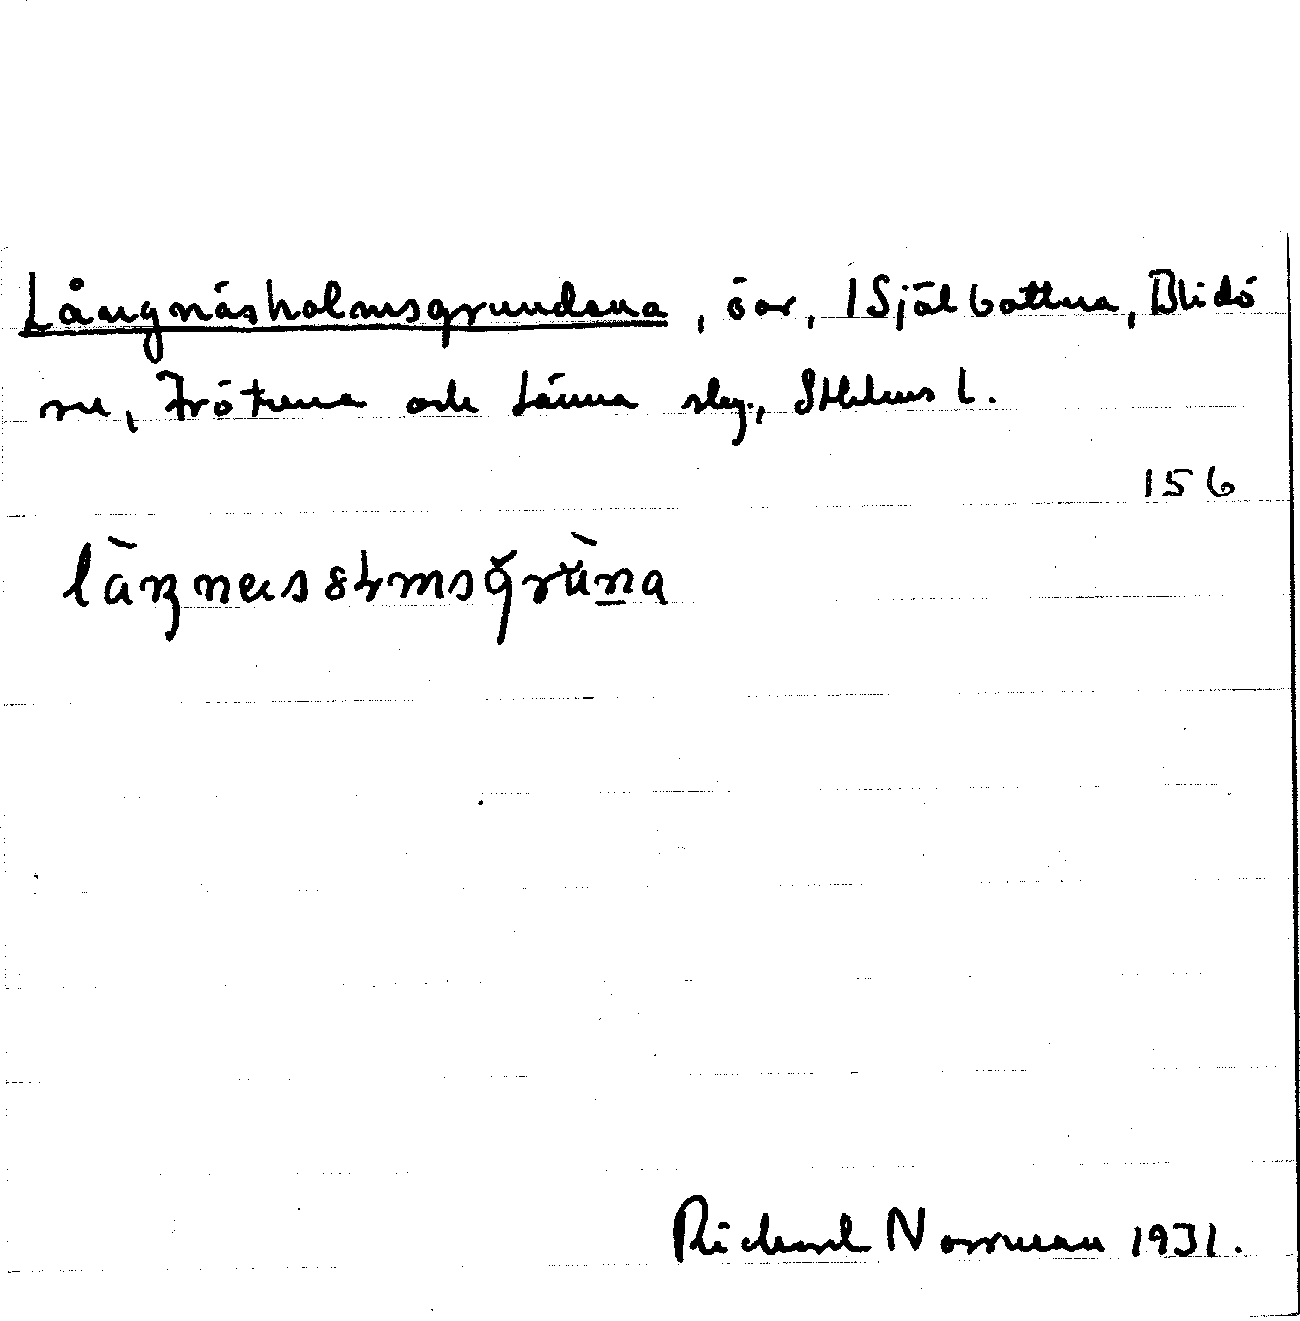 Långnäsholmsgrundena, öar, 1 Själbottna, Blidö
sn, Frötuna och Länna slg., Sthlms l.
156
Richard Norrman 1931.